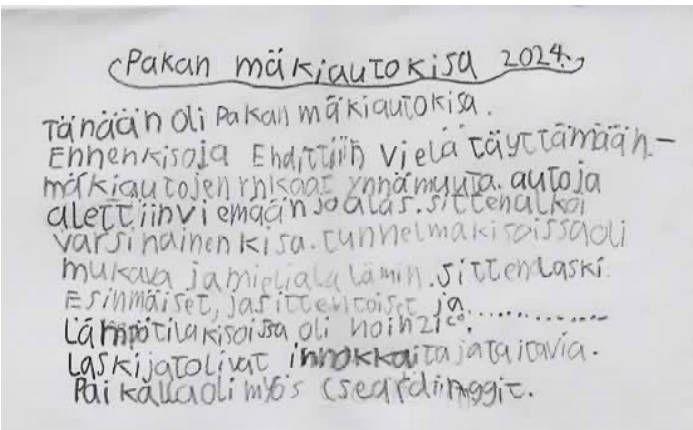 Pakan mäkiautokisa 2024.
Tänään oli Pakan mäkiautokisa.
Ennen kisoja Ehdittiin vielä täyttämään-
mäkiautojen rnkaat ynnämuuta. autoja
alettiin viemään jo alas. sitten alkoi
varsinainen kisa. tunnelma kisoissa oli
mukava ja mieliala lämin. sitten Laski
Esinmäiset, ja sitten toiset ja ..............
Lämpötila kisoissa oli noin
Laskijat olivat innokkaita ja taitavia.
Paikalla oli myös